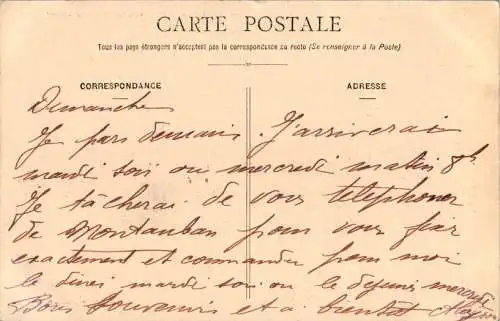 CARTE POSTALE
Tous les pays étrangers n'acceptent pas la correspondance au recto (Se renseigner à la Poste)
CORRESPONDANCE
ADRESSE
Dimanche
Je pars demain. J'arriverai
mardi soir ou mercredi matin 8h
Je tâcherai de vous téléphoner
de Montauban pour vous fixer
exactement et commander pour moi
le diner mardi soir ou le dejeuner mercredi
Bons souvenirs et a bientot